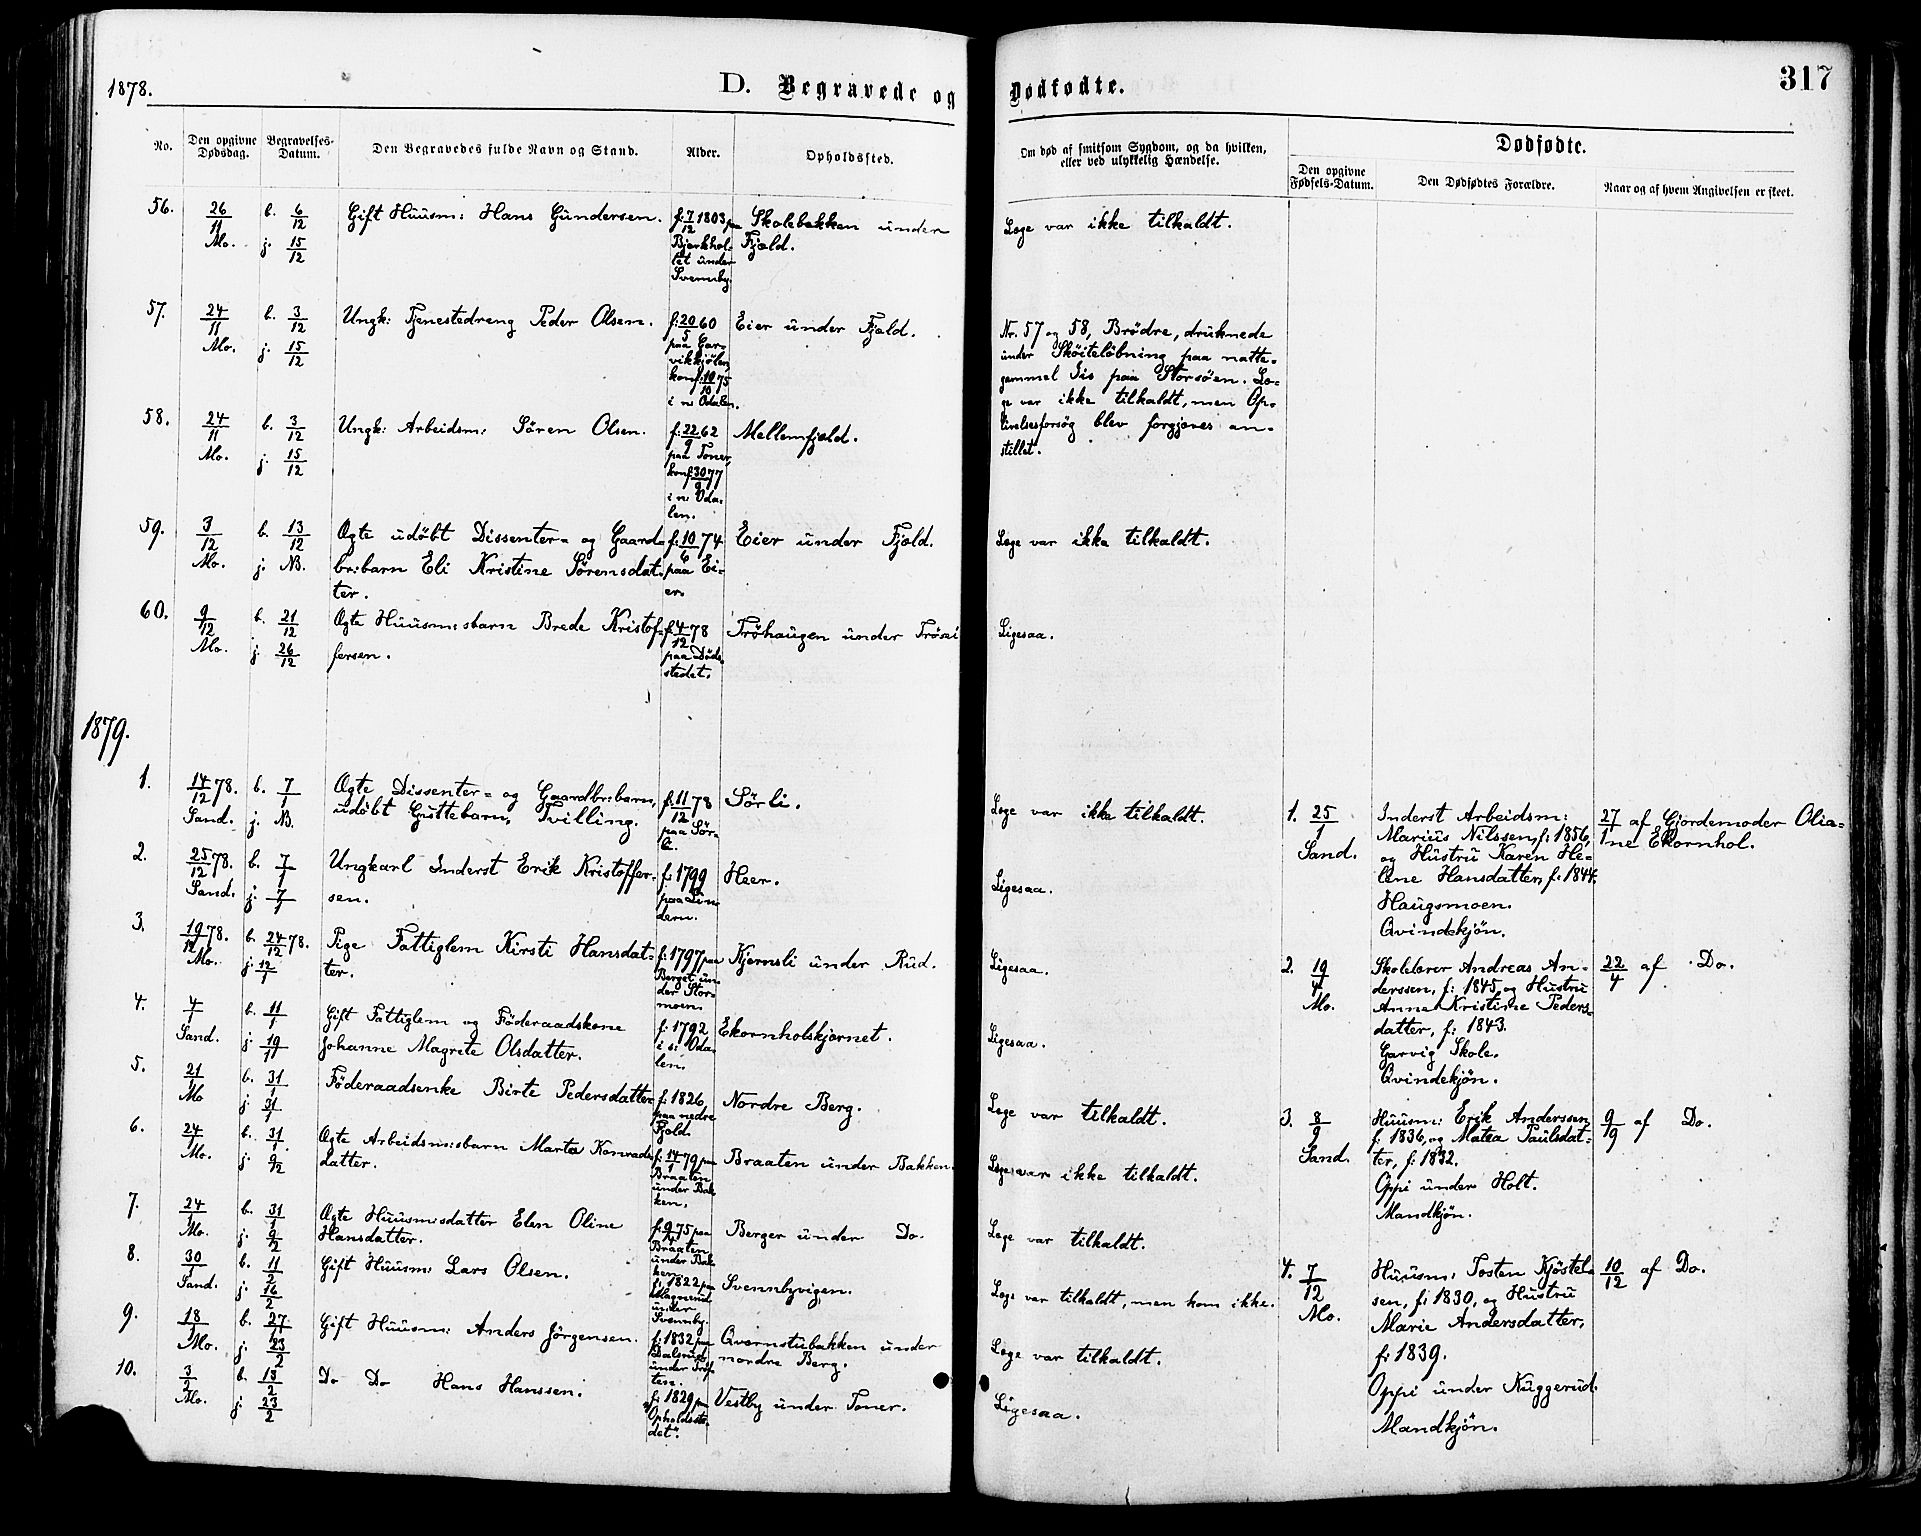 1878.
D. Begravede og Dødfødte.
317
No.
Den opgivne Dødsdag.
Begravelses-Datum.
Den Begravedes fulde Navn og Stand.
Alder.
Opholdssted.
Om død af smitsom Sygdom, og da hvilken,
eller ved ulykkelig Hændelse.
Dødfødte.
Den opgivne Fødsels-Datum.
Den Dødfødtes Forældre.
Naar og af hvem Angivelsen er skeet.
56. 26/11 Mo. b. 6/12 j. 15/12
Gift Huusm: Hans Gundersen.
f. 7/12 1803 paa
Bjerkhol-
tet under
Svennby.
Skolebakken under
Fjæld.
Læge var ikke tilkaldt.
57. 24/11 Mo. b. 3/12 j. 15/12
Ungk: Tjenestedreng Peder Olsen.
f. 20/5 60
paa Gar-
vikkjølen
konf. 10/10 75
i n. Odalen.
Eier under Fjæld.
Nr. 57 og 58, Brødre, druknede
under Skøiteløbning paa natte-
gammel Iis paa Storsøen. Læ-
ge var ikke tilkaldt, men Op-
livelsesforsøg blev forgjæves an-
stillet.
58. 24/11 Mo. b. 3/12 j. 15/12
Ungk: Arbeidsm: Sören Olsen.
f. 22/9 62
paa Toner,
konf. 30/9 77
i n. Oda-
len.
Mellemfjæld.
59. 3/12 Mo. b. 13/12 j. NB.
Ægte udøbt Dissenter- og Gaard-
br:barn Eli Kristine Sörensdat-
ter.
f. 10/6 74
paa Ei-
er.
Eier under Fjæld.
Læge var ikke tilkaldt.
60. 9/12 Mo. b. 21/12 j. 26/12
Ægte Huusm:sbarn Brede Kristof-
fersen.
f. 4/12 78
paa Døds-
stedet.
Tröhaugen under Trösei
Ligesaa.
1879.
1. 14/12 78. Sand. b. 7/1 j. NB.
Ægte Dissenter- og Gaardbr:barn,
udöbt Guttebarn, Tvilling.
f. 11/12 78
paa Sör-
li.
Sörli.
Læge var ikke tilkaldt.
2. 25/12 78. Sand. b. 7/1 j. 7/1
Ungkarl Inderst Erik Kristoffer-
sen.
f. 1799
paa Lin-
dern.
Heer.
Ligesaa.
3. 19/12 78. Mo. b. 24/12 78. j. 12/1
Pige Fattiglem Kirsti Hansdat-
ter.
f. 1797 paa
Berget un-
der Stor-
moen.
Kjernsli under Rud.
Ligesaa.
4. 4/1 Sand. b. 11/1 j. 19/1
Gift Fattiglem og Föderaadskone
Johanne Magrete Olsdatter.
f. 1792
i s. Oda-
len.
Ekornholskjernet.
Ligesaa.
5. 21/1 Mo b. 31/1 j. 31/1
Föderaadsenke Birte Pedersdatter
f. 1826,
paa nedre
Fjæld.
Nordre Berg.
Læge var tilkaldt.
6. 24/1 Mo. b. 31/1 j. 9/2
Ægte Arbeidsm:sbarn Marta Konrads-
datter.
f. 14/1 79 paa
Braaten
under Bak-
ken.
Braaten under Bakken.
Læge var ikke tilkaldt.
7. 24/1 Mo. b. 31/1 j. 9/2
Ægte Huusm:sdatter Elen Oline
Hansdatter.
f. 9/4 75 paa
Braaten
under Bak-
ken.
Berger under Do.
Læge var tilkaldt.
8. 30/1 Sand. b. 11/2 j. 16/2
Gift Huusm: Lars Olsen.
f. 1822 paa
under
Svennby.
Svennbyvigen.
Læge var tilkaldt, men kom ikke.
9. 18/1 Mo. b. 27/1 j. 23/2
Gift Huusm: Anders Jörgensen.
f. 1832 paa
Dalsrud
under Tröf-
ten.
Qvernstubakken under
nordre Berg.
Læge var tilkaldt.
10. 3/2 Mo. b. 15/2 j. 23/2
Do Do Hans Hanssen.
f. 1829 paa
"Opholdsste-
det".
Vestby under Toner.
Ligesaa.
1. 25/1 Sand.
Inderst Arbeidsm:
Marius Nilssen, f: 1856,
og Hustru Karen He-
lene Hansdatter, f: 1844.
Haugsmoen.
Qvindekjön.
27/1 af Gjordemoder Olia-
ne Ekornhol.
2. 19/4 Mo.
Skolelærer Andreas An-
derssen, f: 1845, og Hustru
Anne Kristine Peders-
datter, f: 1843.
Garvig Skole.
Qvindekjön.
22/4 af Do.
3. 8/9 Sand.
Huusm: Erik Anderssen
f. 1836, og Matea Paulsdat-
ter, f: 1832.
Oppi under Holt.
Mandkjön.
9/9 af Do.
4. 7/12 Mo.
Huusm: Tosten Kjöstel-
sen, f: 1830, og Hustru
Marie Andersdatter,
f: 1839.
Oppi under Nuggerud.
Mandkjön.
10/12 af Do.